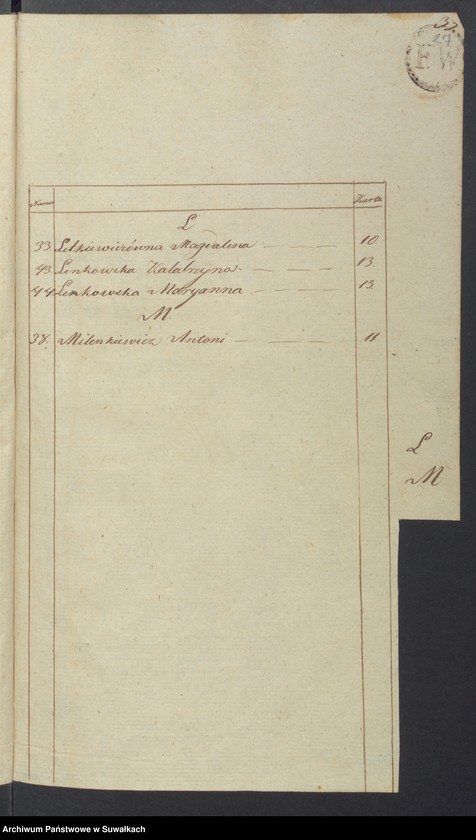 37.
27
F W
Numer Karta
L
33 Letkiewiczówna Magdalena — — — 10.
43. Lenkowska Katarzyna. — — — 13.
44 Lenkowska Maryanna — — — 13.
M
38. Milenkiewicz Antoni — — — 11
L
M
Archiwum Państwowe w Suwałkach